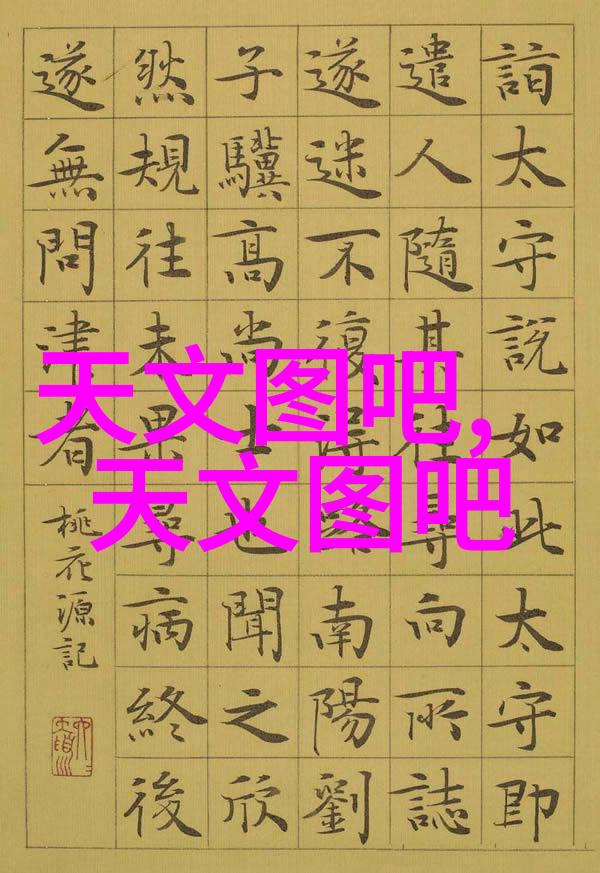 天文图吧,
天文图吧
詣太守說如此太守即
遣人隨其往尋向所誌
遂迷不復得路南陽劉
子驥高尚士也聞之欣
然規往未果尋病終後
遂無問津者
桃花源記